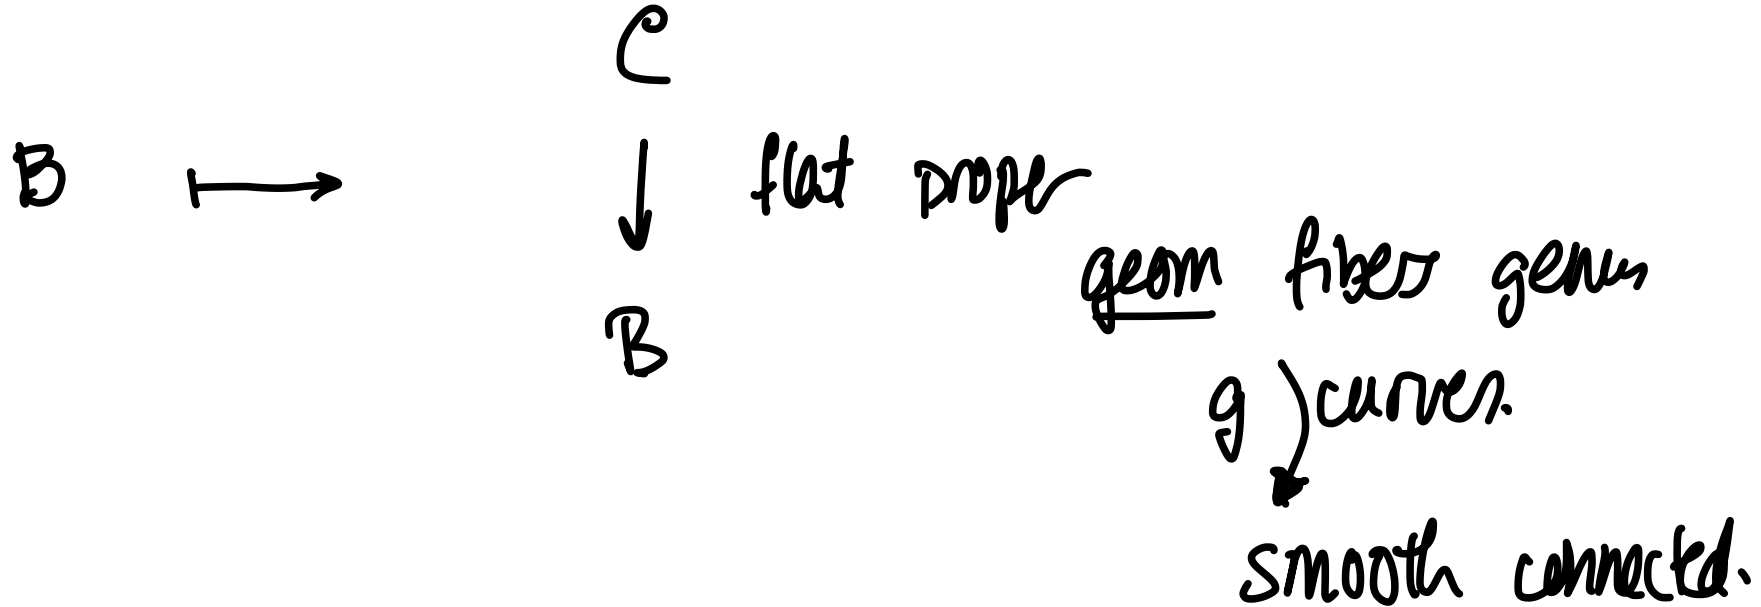 C
B ⟼ ↓ flat proper
B
geom fibers genus
g curves.
smooth connected.